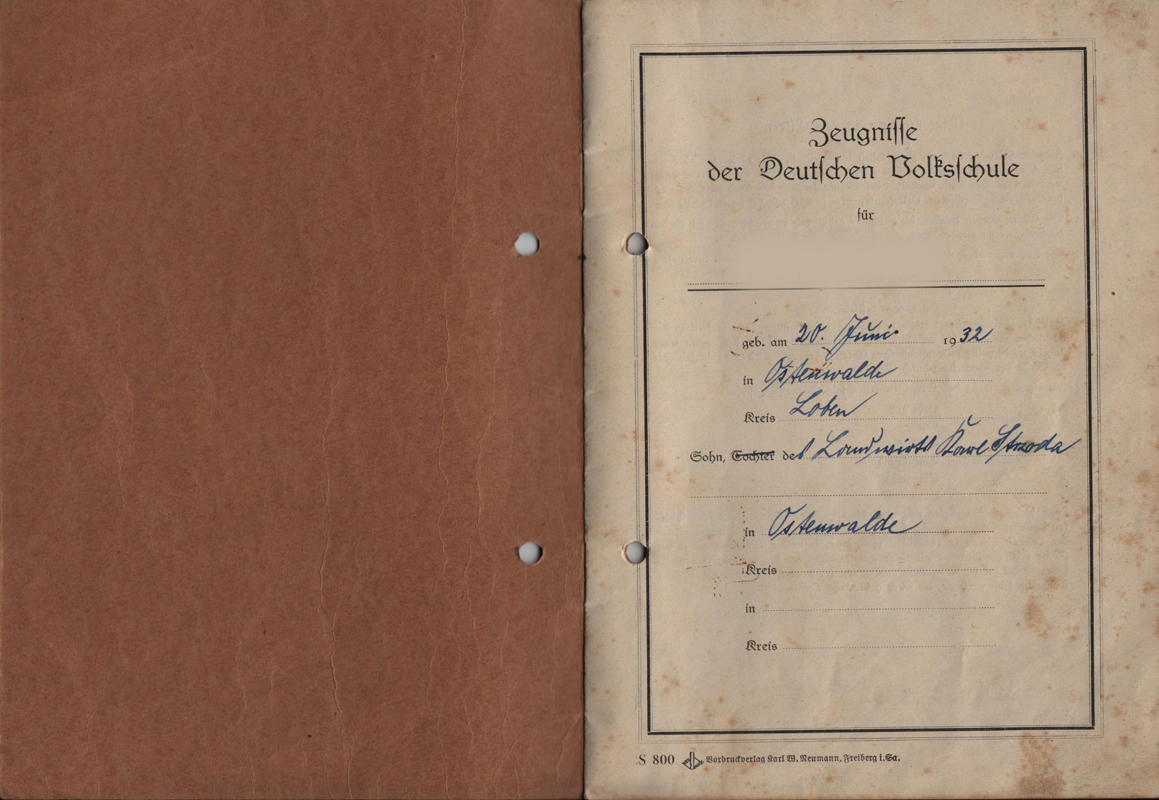 Zeugnisse
der Deutschen Volksschule
für
geb. am 20. Juni 1932
in Ostenwalde
Kreis Loben
Sohn, Tochter des Landwirts Karl Strzoda
in Ostenwalde
Kreis
in
Kreis
S 800 Vordruckverlag Karl W. Neumann, Freiberg i. Sa.